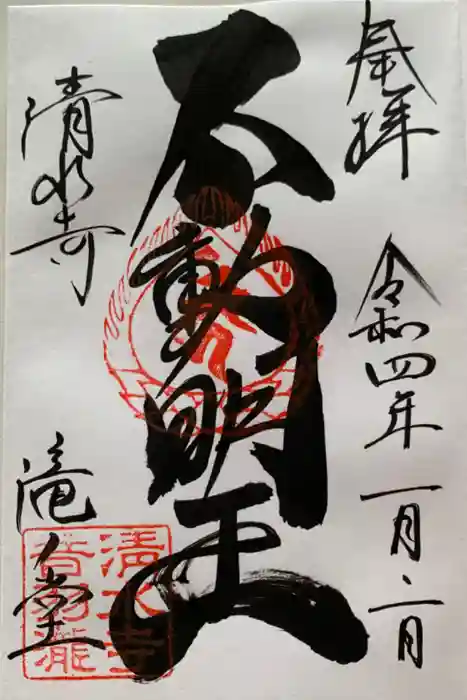 奉拝
令和四年一月二日
不動明王
清水寺
滝ノ堂
清水寺
音羽瀧